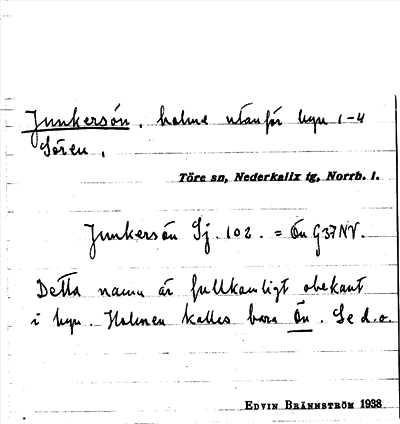 Junkersön, holme utanför byn 1-4
Sören.
Töre sn, Nederkalix tg, Norrb. l.
Junkersön Sj. 102. = Ön G37NV.
Detta namn är fullkomligt obekant
i byn. Holmen kallas bara Ön. Se d.o.
EDVIN BRÄNNSTRÖM 1938